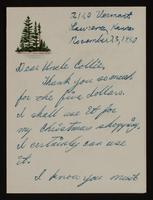 2120 Vermont
Lawrence, Kansas
November 23, 1960
Dear Uncle Collie,
Thank you so much
for the five dollars.
I shall use it for
my Christmas shopping.
I certainly can use
it.
I know you must